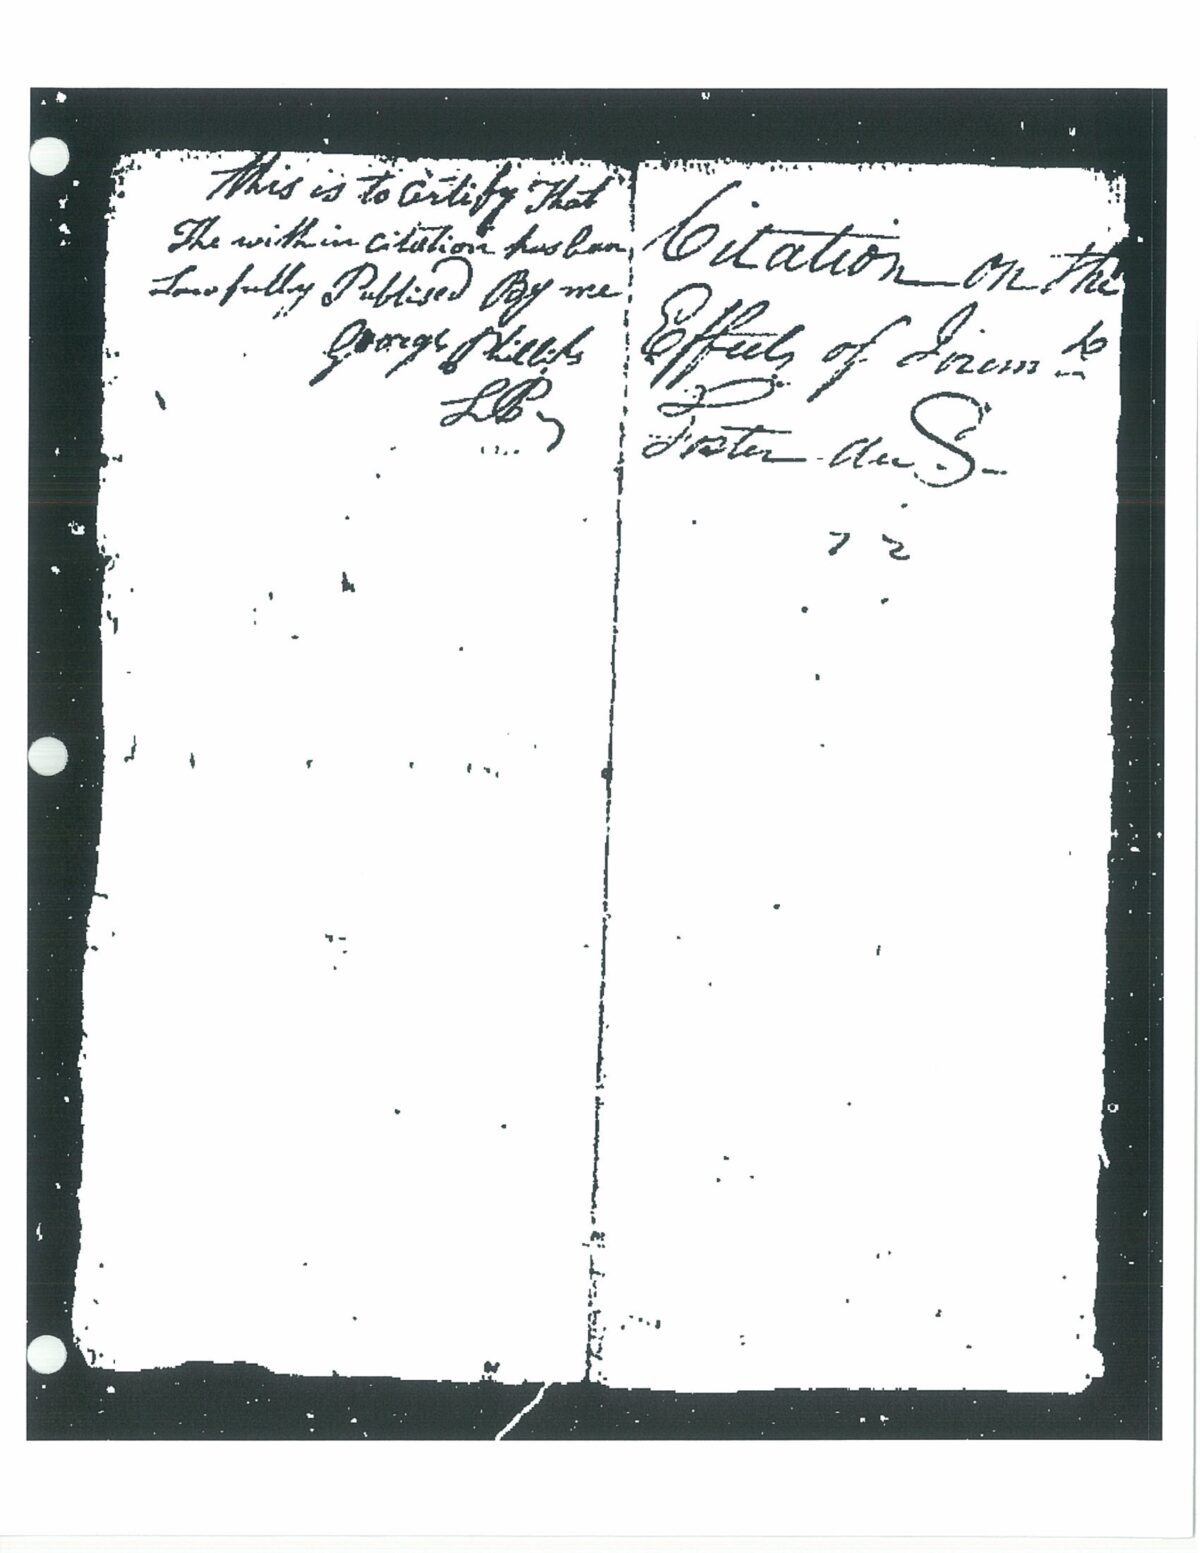 This is to certify That
The within citation has been
Lawfully Publised By me
George Phillips
L P
Citation on the
Effects of
Foster
72